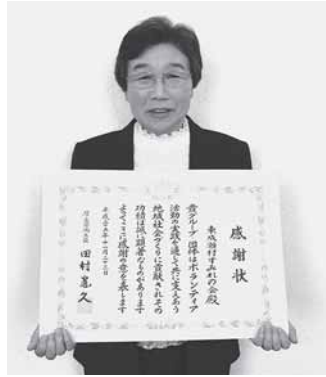 感謝状
東成瀬村すみれの会殿
貴グループ 団体はボランティア
活動の実践を通して共に支えあう
地域社会づくりに貢献されその
功績は誠に顕著なものがあります
よってここに感謝の意を表します
平成二十五年十一月
厚生労働大臣 田村憲久